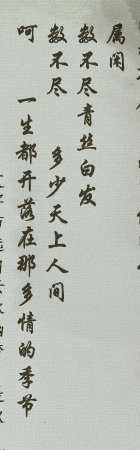 属闲
数不尽青丝白发
数不尽 多少天上人间
呵 一生都开落在那多情的季节